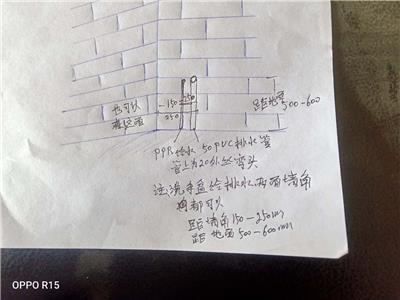 250
也可以
在这面
150
250
距地面
500-600
PPR给水 50PVC排水管
管上为20外丝弯头
注洗手盆给排水两面墙角
都可以
距墙角150-250mm
距地面500-600mm
OPPO R15